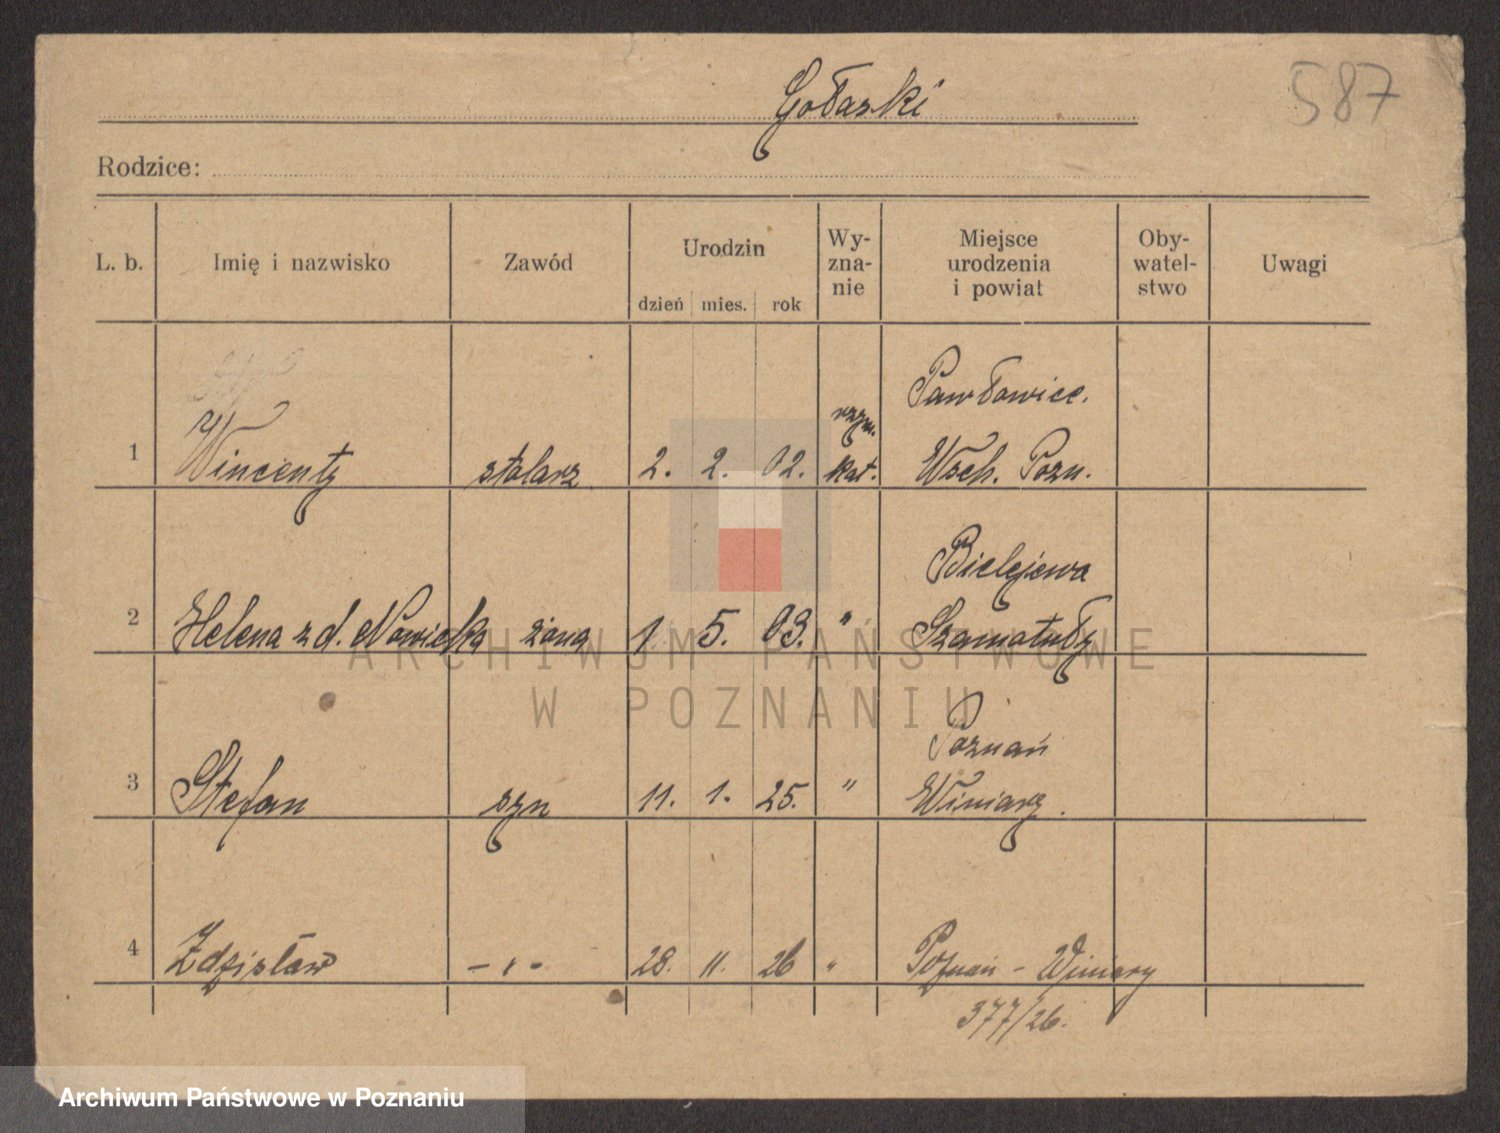 Gołaski
587
Rodzice:
L. b. Imię i nazwisko Zawód Urodzin dzień mies. rok Wy-zna-nie Miejsce urodzenia i powiat Oby-watel-stwo Uwagi
Pawłowice.
1 Wincenty stolarz 2. 2. 02. rzym. kat. Wsch. Pozn.
Bielejewa
2 Helena z d. Nowicka żona 1. 5. 03. " Szamotuły
Poznań
3 Stefan syn 11. 1. 25. " Winiary.
4 Zdzisław - " - 28. 11. 26 " Poznań - Winiary
377/26.
ARCHIWUM PAŃSTWOWE
W POZNANIU
Archiwum Państwowe w Poznaniu